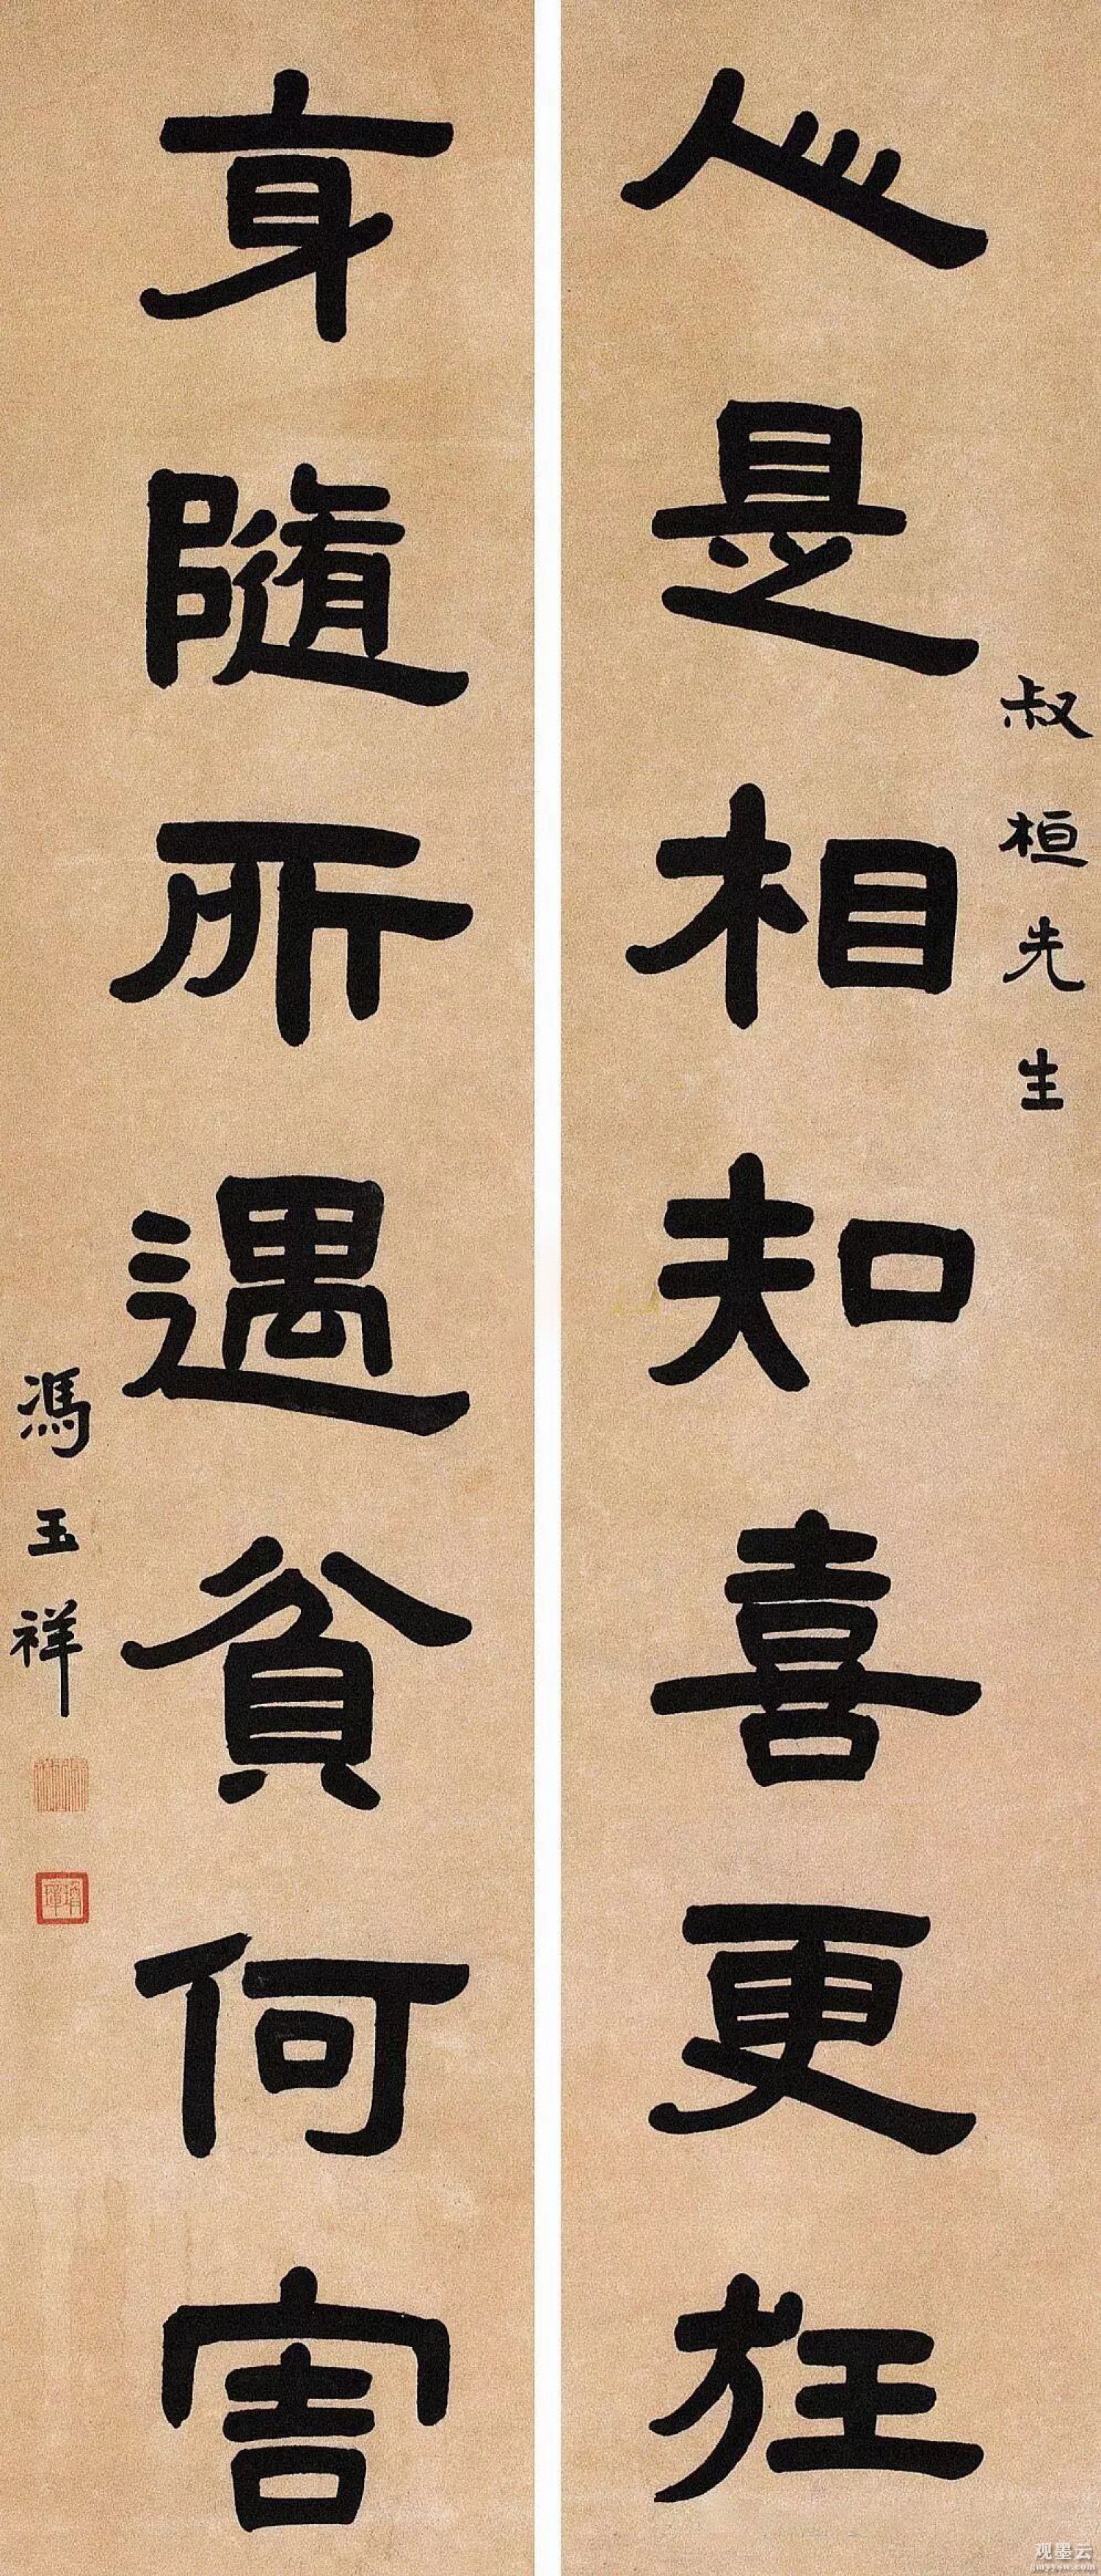 叔桓先生
心是相知喜更狂
身隨所遇貧何害
馮玉祥
观墨云
gmyyaw.com